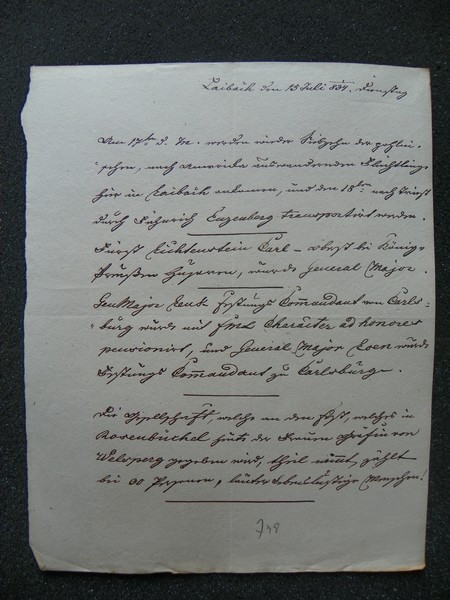 Laibach den 15 Juli 834. Dienstag
Am 17ten d. M. werden wieder Siebzehn der pohlni-
schen, nach Amerika auswandernden Flüchtlinge
hier in Laibach ankommen, und den 18ten nach Triest
durch Fähnrich Eugenberg transportirt werden.
Fürst Lichtenstein Carl – Oberst bei König v
Preußen Husaren, wurde General Major.
GenMajor Festungs Comandant von Carls-
burg wurde mit Fmlt Charakter ad honores
pensionirt, und General Major wurde
Festungs Comandant zu Carlsburg.
Die Gesellschaft, welche an dem Fest, welches in
Rosenbüchel heute der Frauen Gräfin von
Welsperg gegeben wird, theil nimmt, zählt
bei 90 Personen, lauter lebenslustige Menschen!